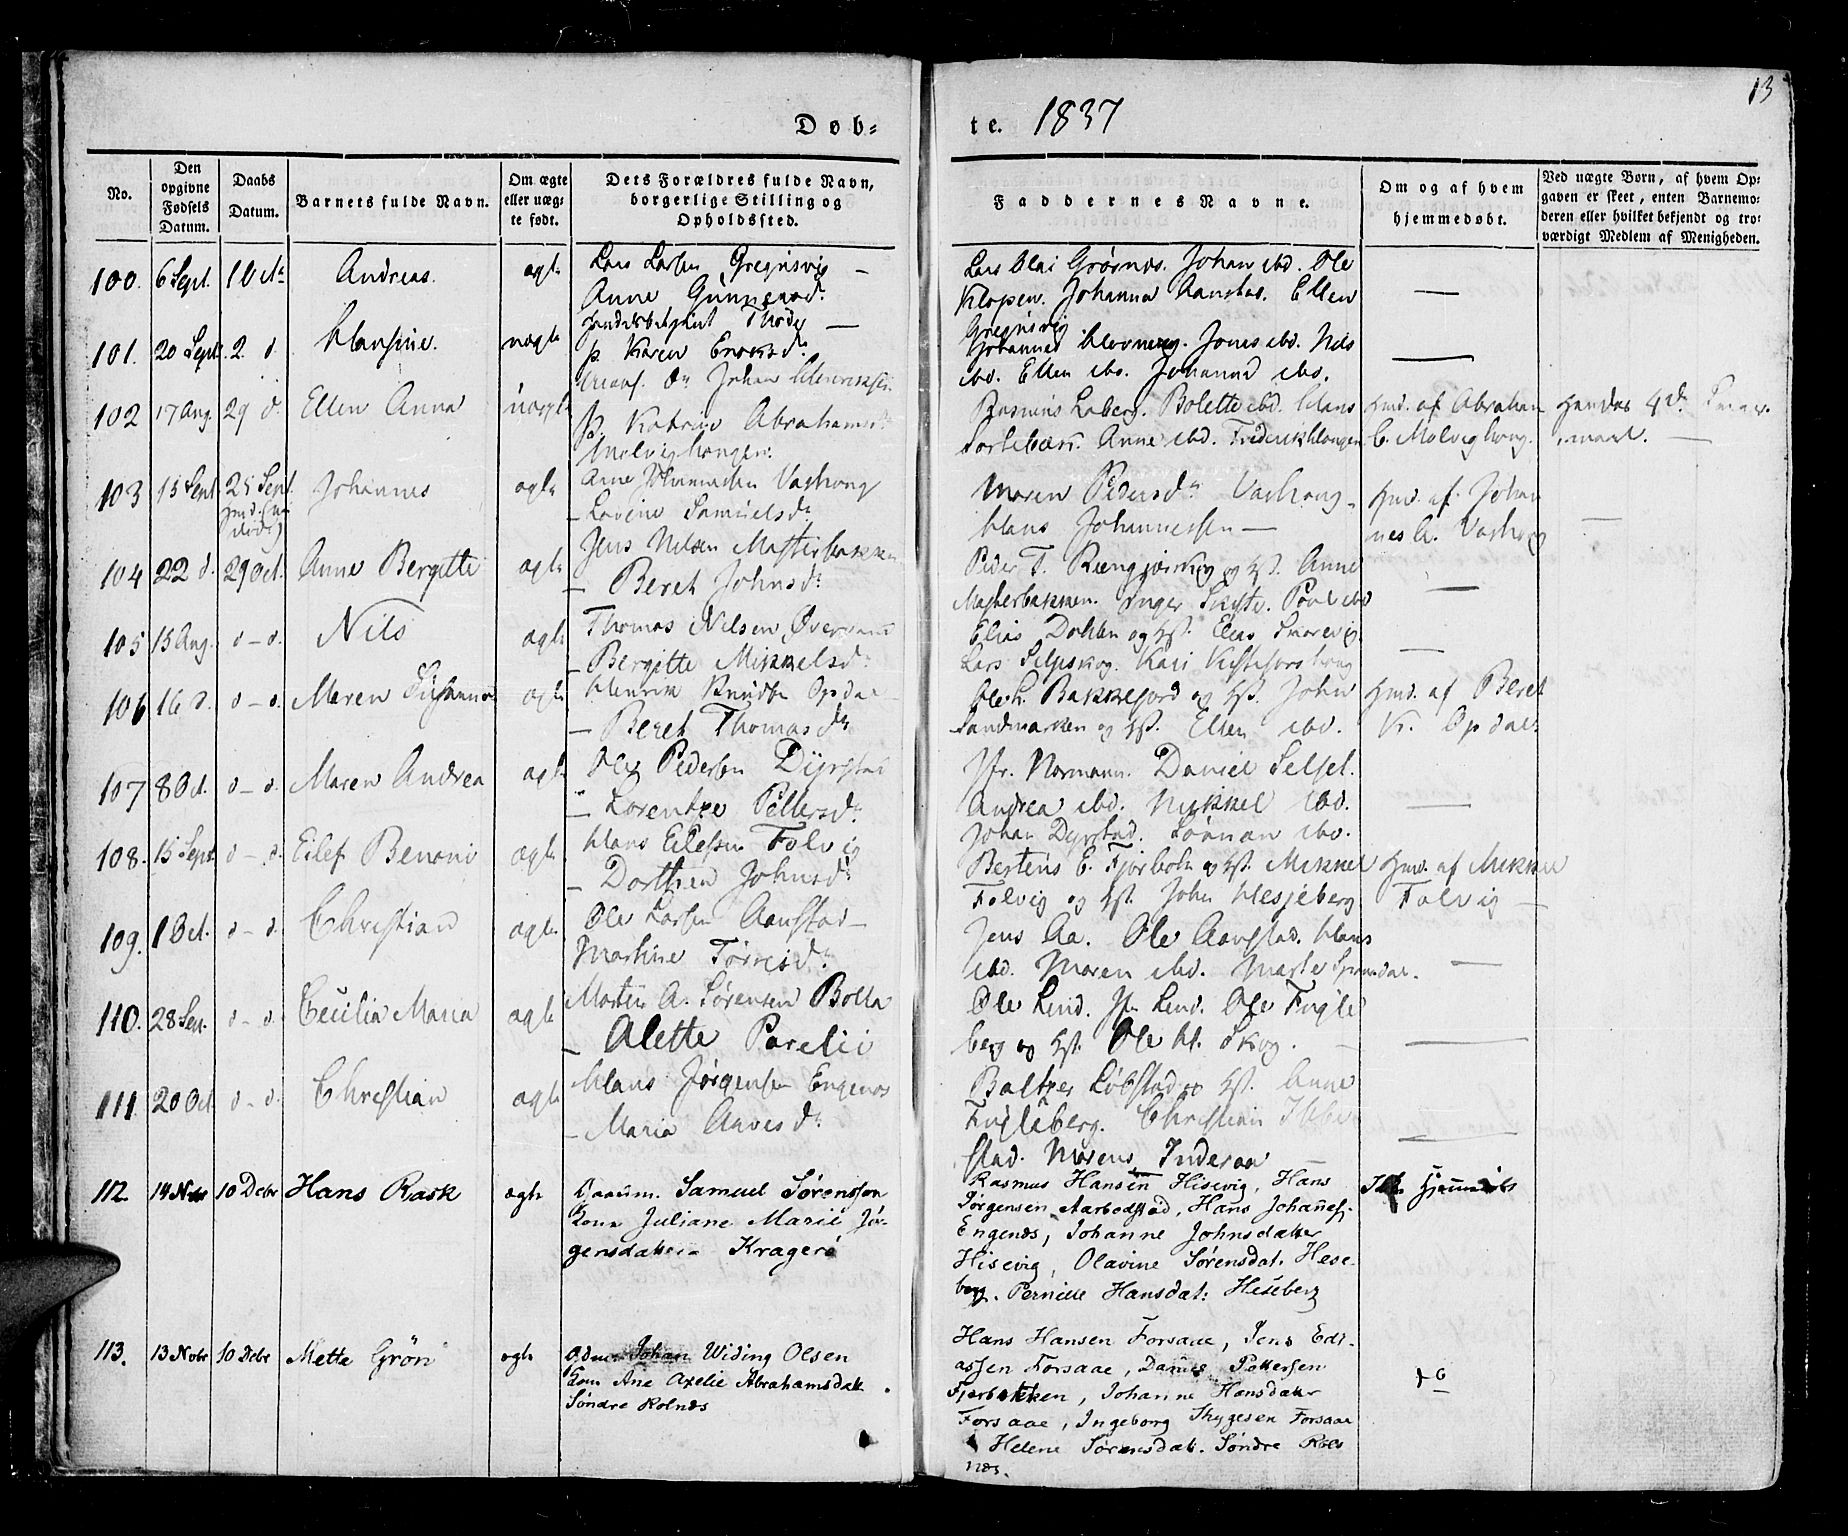 13
Døb- te. 1837
No. Den opgivne Fødsels Datum. Daabs Datum. Barnets fulde Navn. Om ægte eller uægte født. Dets Forældres fulde Navn, borgerlige Stilling og Opholdssted. Faddernes Navne. Om og af hvem hjemmedøbt. Ved uægte Børn, af hvem Opgaven er skeet, enten Barnemoderen eller hvilket bekjendt og troværdigt Medlem af Menigheden.
100. 6 Sept. 1 Oct. Andreas. ægte
Lars Larsen Gregusvig —
Anne Gunnersd.
Lars Olai Grøsnæs. Johan ibd. Ole
Klopen. Johanna Aanstad. Ellen
Gregusvig —
101. 20 Sept. 2 d. Hansine. uægte
Thode —
p. Karen Enoksd.
Johannes. Jonas ibd. Nils
ibd. Ellen ibd. Johanna ibd. —
102 17 Aug. 29 d. Ellen Anna uægte
Johan Henriksen
p. Katrine Abrahamsd.
Molvighougen.
Rasmus Laberg. Bolette ibd. Hans
Sortebæk. Anne ibd. Frederik Hougen
Hmd. af Abraham
C. Molvighoug.
Hendes 4d.
maal. —
103 15 Sept. 25 Sept. Johannes ægte
Arne Johannesen Vashoug
— Lovine Samuelsd.
Maren Pedersd. Vashoug
Hans Johannessen —
Hmd. af Johan
nes A. Vashoug —
104 22 d. 29 Oct. Anne Bergitte ægte
Jens Nilsen Masterbakken
— Beret Johnsd.
Peder T. og Hst. Anne
Masterbakken. Inger Poul ibd —
105 15 Aug. d — d. Nils ægte
Thomas Nilsen
— Bergitte Mikkelsd.
Elias Dohlen og Hst. Elias
Lars Selseskog. Kari —
106 16 d. d — d. Maren Susanna ægte
Henrik Knudsen Opdal
— Beret Thomasd.
Ole H. Bakkefjord og Hst. John
Sandmarken og Hst. Ellen ibd.
Hmd. af Beret
Kr. Opdal.
107 8 Oct. d — d. Maren Andrea ægte
Ole Pedersen Dyrstad
— Lorentze Pettersd.
Jfr. Normann. Daniel Selset.
Andrea ibd. Mikkel ibd.
Johan Dyrstad. ibd. —
108. 15 Sept. d — d. Eilef Benoni ægte
Hans Eilefsen Folvig
— Dorthea Johnsd.
Bertens E. Fjorbotn og Hst. Mikkel
Folvig og Hst. John Hesjeberg
Hmd. af Mikkel
Folvig —
109. 1 Oct. d — d. Christian ægte
Ole Larsen Aanstad —
Martine Torresd.
Jens Aa. Ole Aanstad. Hans
ibd. Maren ibd. Marte —
110. 28 Sept. d — d. Cecilia Maria ægte
Morten A. Sørensen Bolla
— Alette Parelii
Ole Lind. Jfr. Lind. Ole Fugle
berg og Hst. Ole H. Skog. —
111. 20 Oct. d — d. Christian ægte
Hans Jørgensen Engenæs
— Maria Aavesd.
Baltzer Løbstad og Hst. Anne
Fugleberg. Christian Ibbe
stad. Marcus Inderaa —
112. 14 Nobr 10 Debr Hans Rask ægte
Gaarm. Samuel Sørenssøn
Kone Juliane Marie Jør-
gensdatter Kragerø
Rasmus Hansen Hisevig, Hans
Jørgensen Aarbodstad, Hans Johanness.
Engenæs, Johanne Johnsdatter
Hisevig, Olavine Sørensdat. Hese-
berg. Pernille Hansdat: Heseberg
Ikke hjemmedøbt
113. 13 Nobr 10 Debr Mette Grøn ægte
Johan Widing Olsen
Kone Ane Axelie Abrahamsdatt.
Søndre Rolnæs
Hans Hansen Forsaae, Jens Edi-
assen Forsaae, Daniel Pettersen
Fjærbakken, Johanne Hansdatter
Forsaae, Ingeborg Thygesen Forsaae
Helene Sørensdatt. Søndre Rol
næs.